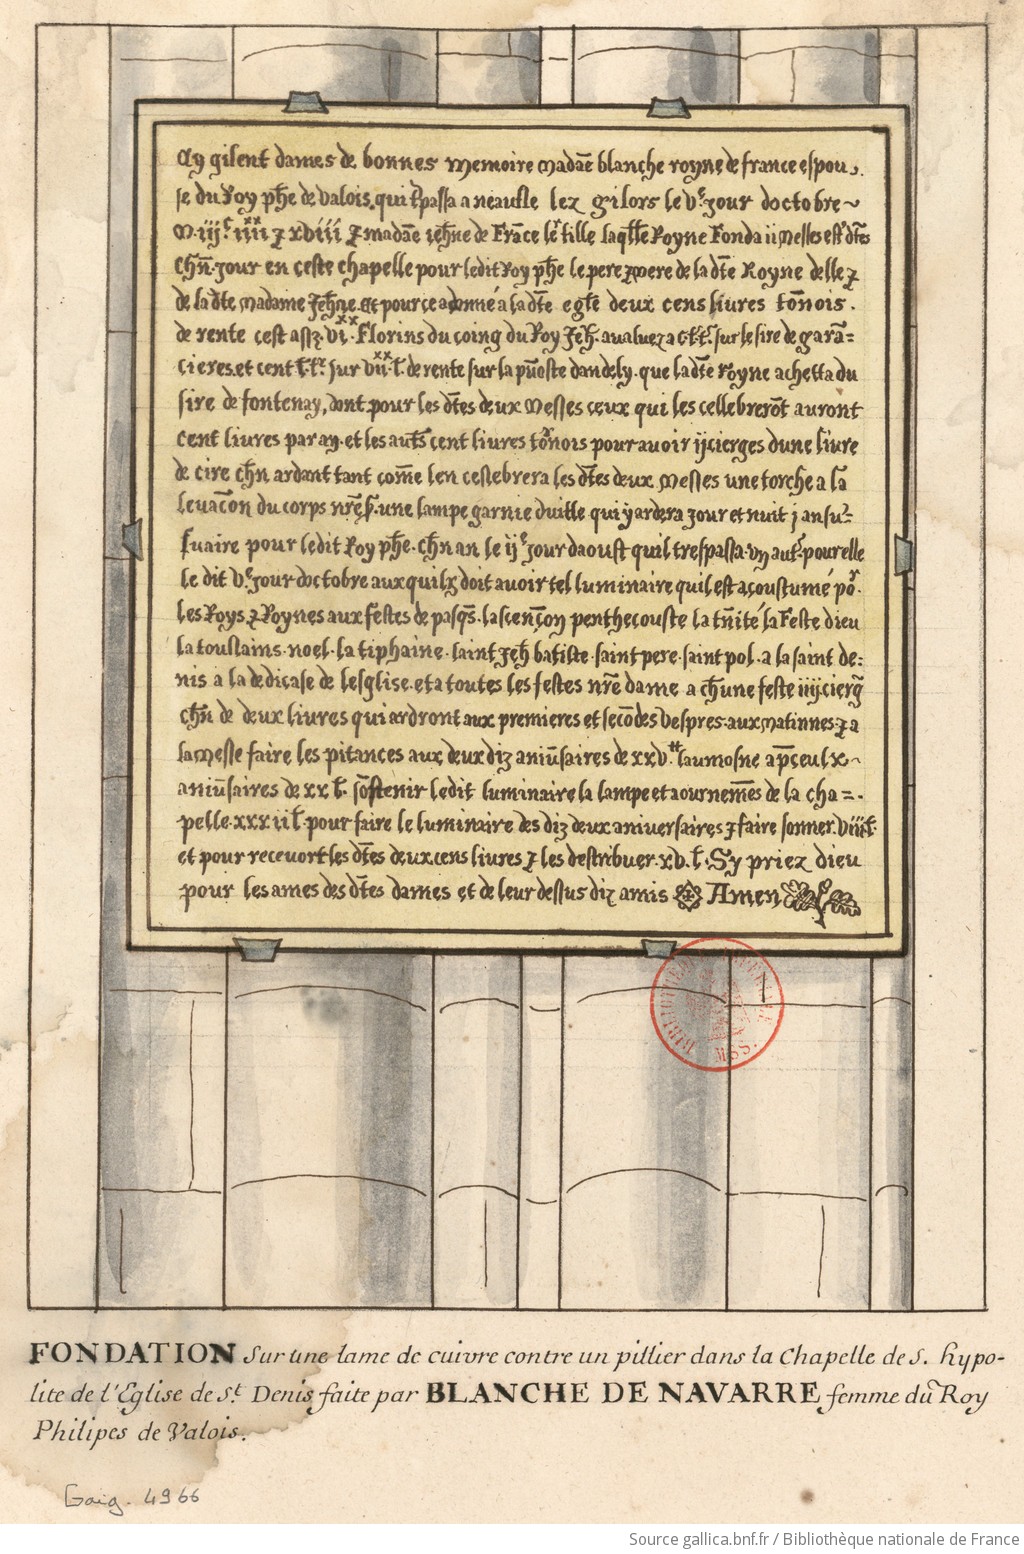 Cy gisent dames de bonnes memoire madae blanche royne de france espou
se du Roy phe de valois qui tspassa a neausle lez gisors le Ve jour doctobre
M iijc iiijxx z xviii z madae jehne de France le fille laqlle Royne Fonda ii messes est dtes
chn jour en ceste chapelle pour ledit Roy phe le pere z mere de la dte Royne delle z
de la dte madame Jehne et pour ce a donné a la dte egle deux cens livres tonois .
de rente cest ass Florins du coing du Roy Jeh avaluez a sur le sire de gara=
cieres et cent sur de rente sur la pnoste dandely que la dte royne achetta du
sire de fontenay, dont pour les dtes deux messes ceux qui les cellebrerot auront
cent livres par ay et les auts cent livres tonois pour avoir ij cierges dune livre
de cire chn ardant tant come len cestebrera les dtes deux messes une torche a la
levacon du corps nre une lampe garnie duille qui y ardera jour et nuit
fuaire pour ledit Roy phe chn an le ije jour daoust quil trespassa un aut pour elle
le dit Ve jour doctobre auxquilz doit avoir tel luminaire quil est acoustumé po
les Roys z Roynes aux festes de pasqs lascencon penthecouste la tnité la Feste dieu
la toussains noel la tiphaine saint Jeh batiste saint pere saint pol a la saint de=
nis a la dedicase de lesglise et a toutes les festes nre dame a chune feste iiij cierg
chn de deux livres qui ardront aux premieres et secodes vespres aux matinnes z a
la messe faire les pitances aux deux diz anivsaires de xxv laumosne
anivsaires de xx l. sostenir ledit luminaire la lampe et aournemes de la cha=
pelle xxxii l pour faire le luminaire des diz deux aniversaires z faire sonner viii l
et pour recevoir les dtes deux cens livres z les destribuer xv. l. Sy priez dieu
pour les ames des dtes dames et de leur dessus diz amis Amen
BIBLIOTHEQUE MSS.
FONDATION Sur une lame de cuivre contre un pillier dans la Chapelle de S. hypo-
lite de l'Eglise de St. Denis faite par BLANCHE DE NAVARRE femme du Roy
Philipes de Valois.
Gaig. 4966
Source gallica.bnf.fr / Bibliothèque nationale de France